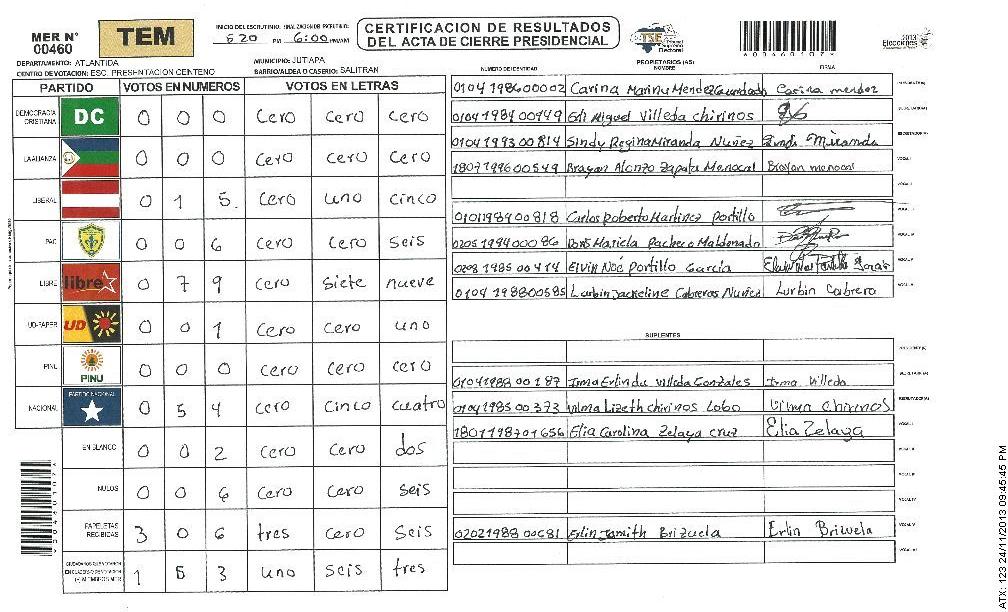 MER N° 00460
TEM
INICIO DEL ESCRUTINIO: FINALIZACION DE ESCRUTINIO:
5 20 PM 6:00 PM/AM
CERTIFICACION DE RESULTADOS DEL ACTA DE CIERRE PRESIDENCIAL
TSE Tribunal Supremo Electoral
2013 Elecciones
DEPARTAMENTO: ATLANTIDA
MUNICIPIO: JUTIAPA
CENTRO DE VOTACION: ESC. PRESENTACION CENTENO
BARRIO/ALDEA O CASERIO: SALITRAN
PARTIDO VOTOS EN NUMEROS VOTOS EN LETRAS
DEMOCRACIA CRISTIANA DC 0 0 0 Cero Cero Cero
LA ALIANZA 0 0 0 Cero Cero Cero
LIBERAL 0 1 5. Cero uno cinco
PAC 0 0 6 Cero Cero Seis
LIBRE libre 0 7 9 Cero siete nueve
UD-FAPER UD 0 0 1 Cero Cero uno
PINU PINU 0 0 0 Cero Cero Cero
NACIONAL PARTIDO NACIONAL 0 5 4 Cero Cinco cuatro
EN BLANCO 0 0 2 Cero Cero dos
NULOS 0 0 6 Cero Cero seis
PAPELETAS RECIBIDAS 3 0 6 tres Cero Seis
1 6 3 uno seis tres
NUMERO DE IDENTIDAD PROPIETARIOS (AS) NOMBRE FIRMA
0104 1986 00002 Carina Marinu Mendez Carina mendez
0104 1984 00449 Edi Miguel Villeda chirinos
0104 1993 00814 Sindy Regina Miranda Nuñez Miranda
1807 1996 00549 Brayan Alonzo Zapata Menocal Brayan menocal
0101 1984 00818 Carlos Roberto Martinez Portillo
0205 1994 00086 Doris Mariela Pacheco Maldonado
0208 1985 00414 Elvin Noé Portillo Garcia
0104 1988 00585 Lurbin Jackeline Cabreros Nuñez Lurbin Cabrera
SUPLENTES
0104 1988 00187 Irma Erlinda Villeda Gonzales Irma Villeda
0104 1985 00373 Vilma Lizeth chirinos Lobo Vilma chirinos
1801 1987 01656 Elia Carolina Zelaya Cruz Elia Zelaya
0202 1988 00681 Erlin Jamith Brizuela Erlin Brizuela
ATX: 123 24/11/2013 09:45:45 PM